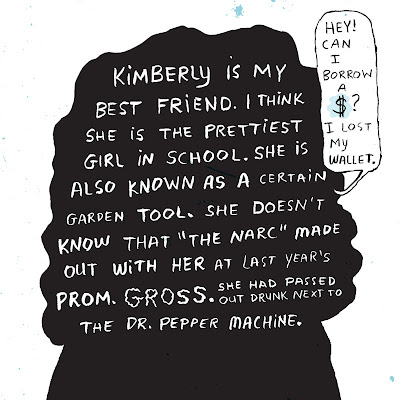 KiMBERLY iS MY
BEST FRiEND. I THiNK
SHE iS THE PRETTiEST
GiRL iN SCHOOL. SHE iS
ALSO KNOWN AS A CERTAiN
GARDEN TOOL. SHE DOESN'T
KNOW THAT "THE NARC" MADE
OUT WiTH HER AT LAST YEAR'S
PROM. GROSS. SHE HAD PASSED
OUT DRUNK NEXT TO
THE DR. PEPPER MACHiNE.
HEY!
CAN
I
BORROW
A
$?
I LOST
MY
WALLET.